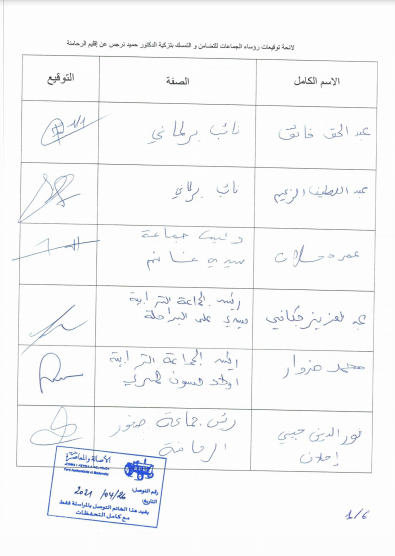 لائحة توقيعات رؤساء الجماعات للتضامن و التمسك بتزكية الدكتور حميد نرجس عن إقليم الرحامنة
الاسم الكامل الصفة التوقيع
عبد الحق فائق نائب برلماني
عبد اللطيف الزعيم نائب برلماني
جماعة
سيدي غانم
عبد العزيز رئيس الجماعة الترابية
سيدي على البراحلة
محمد رئيس الجماعة الترابية
أولاد حسون
نور الدين حبيبي رئيس جماعة صخور
الرحامنة
الأصالة والمعاصرة
رقم التوصل:
التاريخ: 2021 /04/26
يفيد هذا الخاتم التوصل بالمراسلة فقط
مع كامل التحفظات
1/6